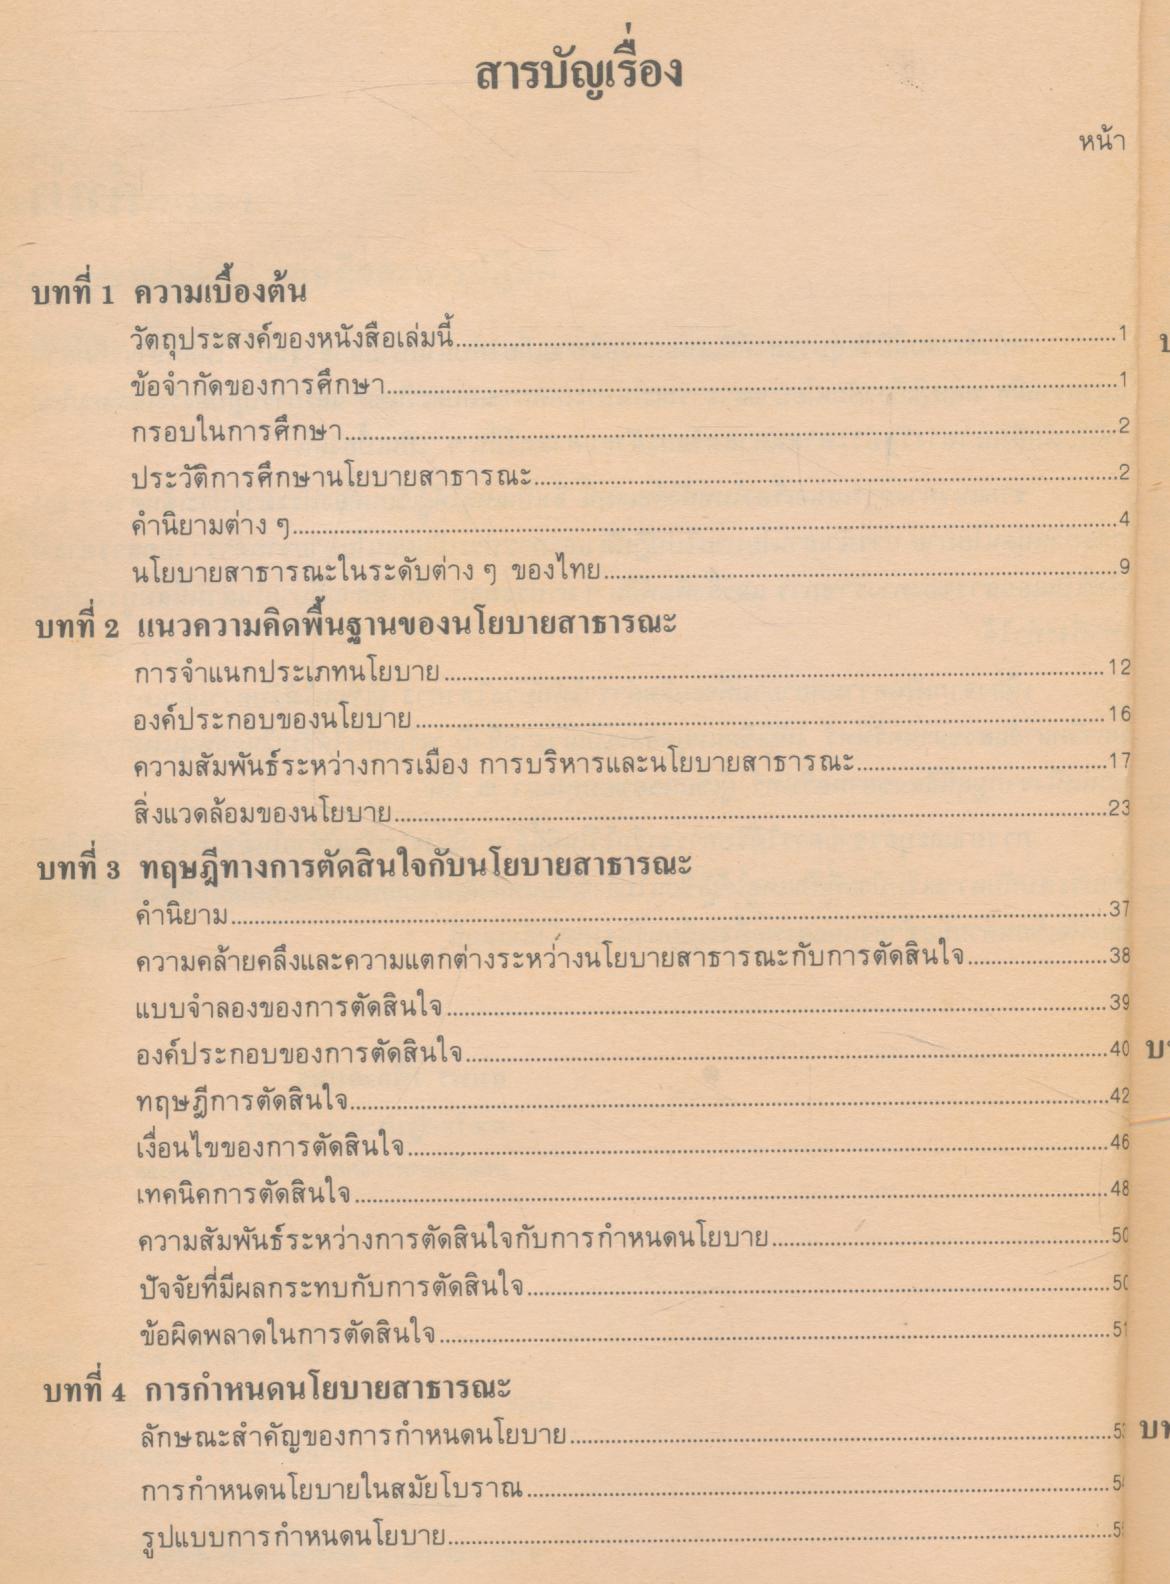 สารบัญเรื่อง
หน้า
บทที่ 1 ความเบื้องต้น
วัตถุประสงค์ของหนังสือเล่มนี้..........1
ข้อจำกัดของการศึกษา..........1
กรอบในการศึกษา..........2
ประวัติการศึกษานโยบายสาธารณะ..........2
คำนิยามต่าง ๆ..........4
นโยบายสาธารณะในระดับต่าง ๆ ของไทย..........9
บทที่ 2 แนวความคิดพื้นฐานของนโยบายสาธารณะ
การจำแนกประเภทนโยบาย..........12
องค์ประกอบของนโยบาย..........16
ความสัมพันธ์ระหว่างการเมือง การบริหารและนโยบายสาธารณะ..........17
สิ่งแวดล้อมของนโยบาย..........23
บทที่ 3 ทฤษฎีทางการตัดสินใจกับนโยบายสาธารณะ
คำนิยาม..........37
ความคล้ายคลึงและความแตกต่างระหว่างนโยบายสาธารณะกับการตัดสินใจ..........38
แบบจำลองของการตัดสินใจ..........39
องค์ประกอบของการตัดสินใจ..........40
ทฤษฎีการตัดสินใจ..........42
เงื่อนไขของการตัดสินใจ..........46
เทคนิคการตัดสินใจ..........48
ความสัมพันธ์ระหว่างการตัดสินใจกับการกำหนดนโยบาย..........50
ปัจจัยที่มีผลกระทบกับการตัดสินใจ..........50
ข้อผิดพลาดในการตัดสินใจ..........51
บทที่ 4 การกำหนดนโยบายสาธารณะ
ลักษณะสำคัญของการกำหนดนโยบาย..........
การกำหนดนโยบายในสมัยโบราณ..........
รูปแบบการกำหนดนโยบาย..........